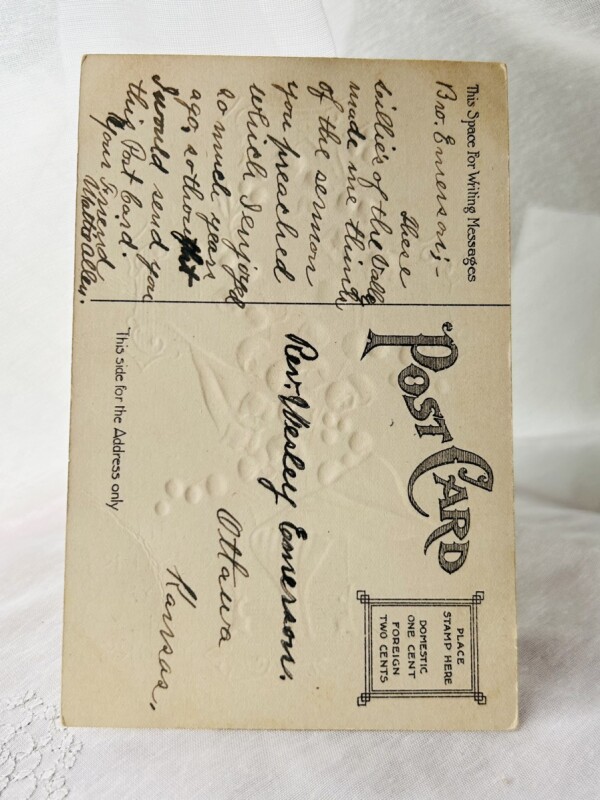 This Space For Writing Messages
Bro. Emerson;-
these
lillies of the Vally
made me think
of the sermon
you preached
which I enjoyed
so much years
ago, so thought
I would send you
this Post Card.
Your Friend
Walter Allen.
POST CARD
PLACE
STAMP HERE
DOMESTIC
ONE CENT
FOREIGN
TWO CENTS
Rev. Wesley Emerson.
Ottawa
Kansas.
This side for the Address only